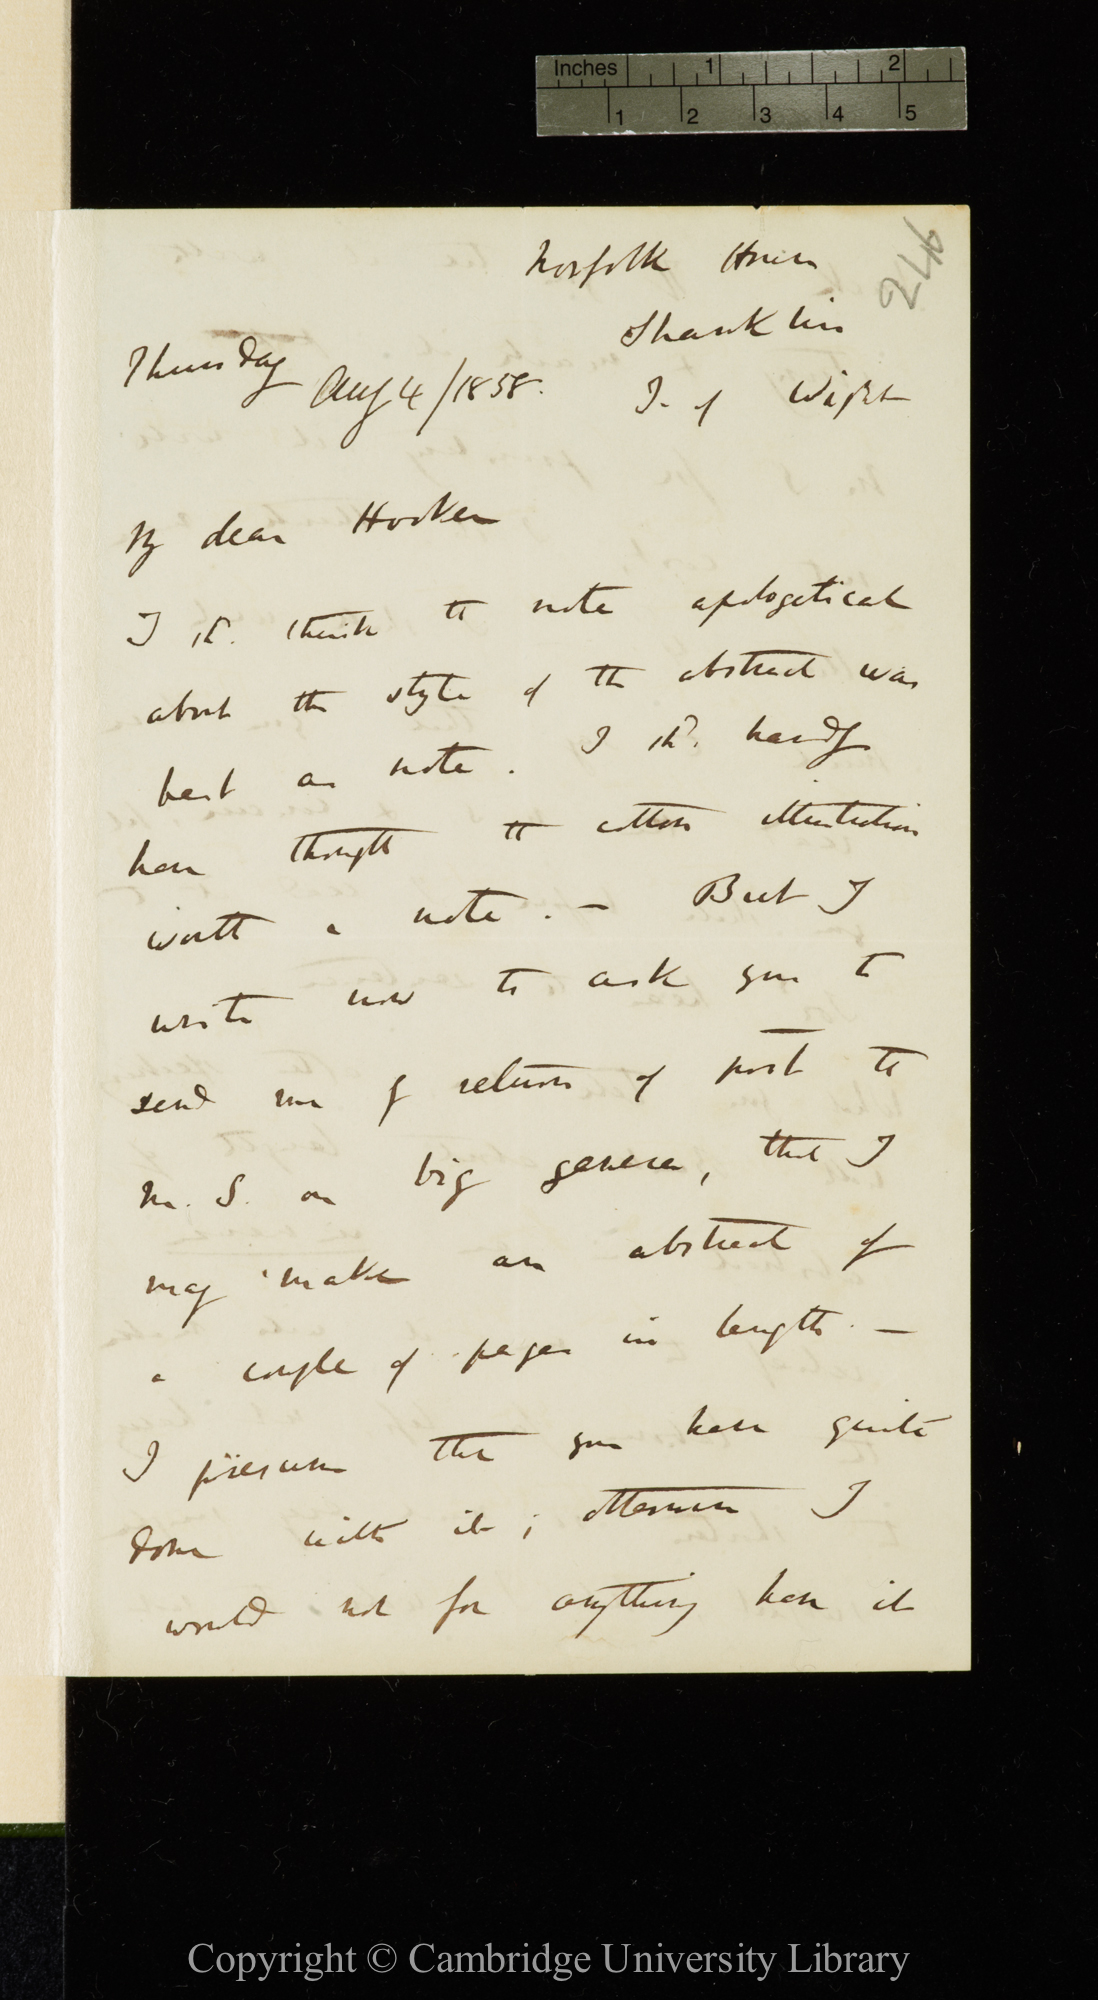 Inches 1 2
1 2 3 4 5
246
Norfolk House
Shanklin
I. of Wight
Thursday Aug 4/1858.
My dear Hooker
I shd. think the note apologetical
about the style of the abstract was
best as note. I shd. hardly
have thought the cotton illustration
worth a note. — But I
write now to ask you to
send me by return of post the
M. S. on big genera, that I
may make an abstract of
a couple of pages in length. —
I presume that you have quite
done with it; otherwise I
would not for anything have it
Copyright © Cambridge University Library